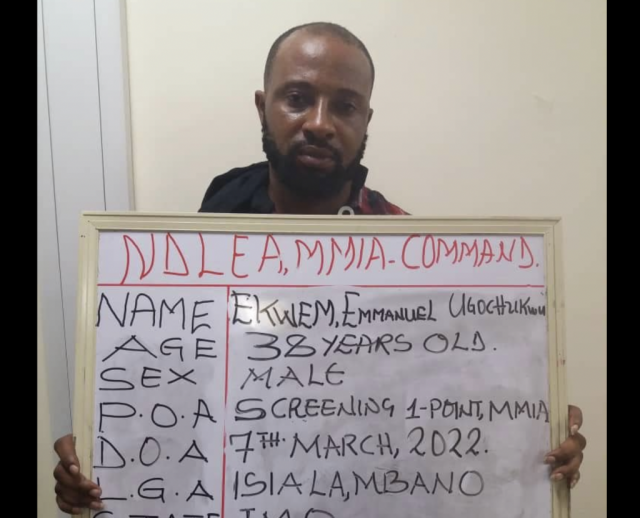 NDLEA, MMIA-COMMAND.
NAME EKWEM, EMMANUEL UGOCHUKWU
AGE 38 YEARS OLD.
SEX MALE
P.O.A SCREENING 1-POINT, MMIA
D.O.A 7TH. MARCH, 2022.
L.G.A ISIALA, MBANO
STATE IMO